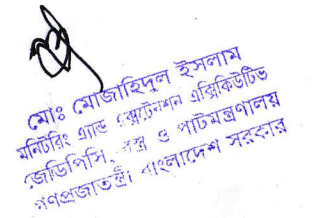 মোঃ মোজাহিদুল ইসলাম
মনিটরিং এ্যান্ড প্রোডাকশন এক্সিকিউটিভ
জেডিপিসি, বস্ত্র ও পাটমন্ত্রণালয়
গণপ্রজাতন্ত্রী বাংলাদেশ সরকার